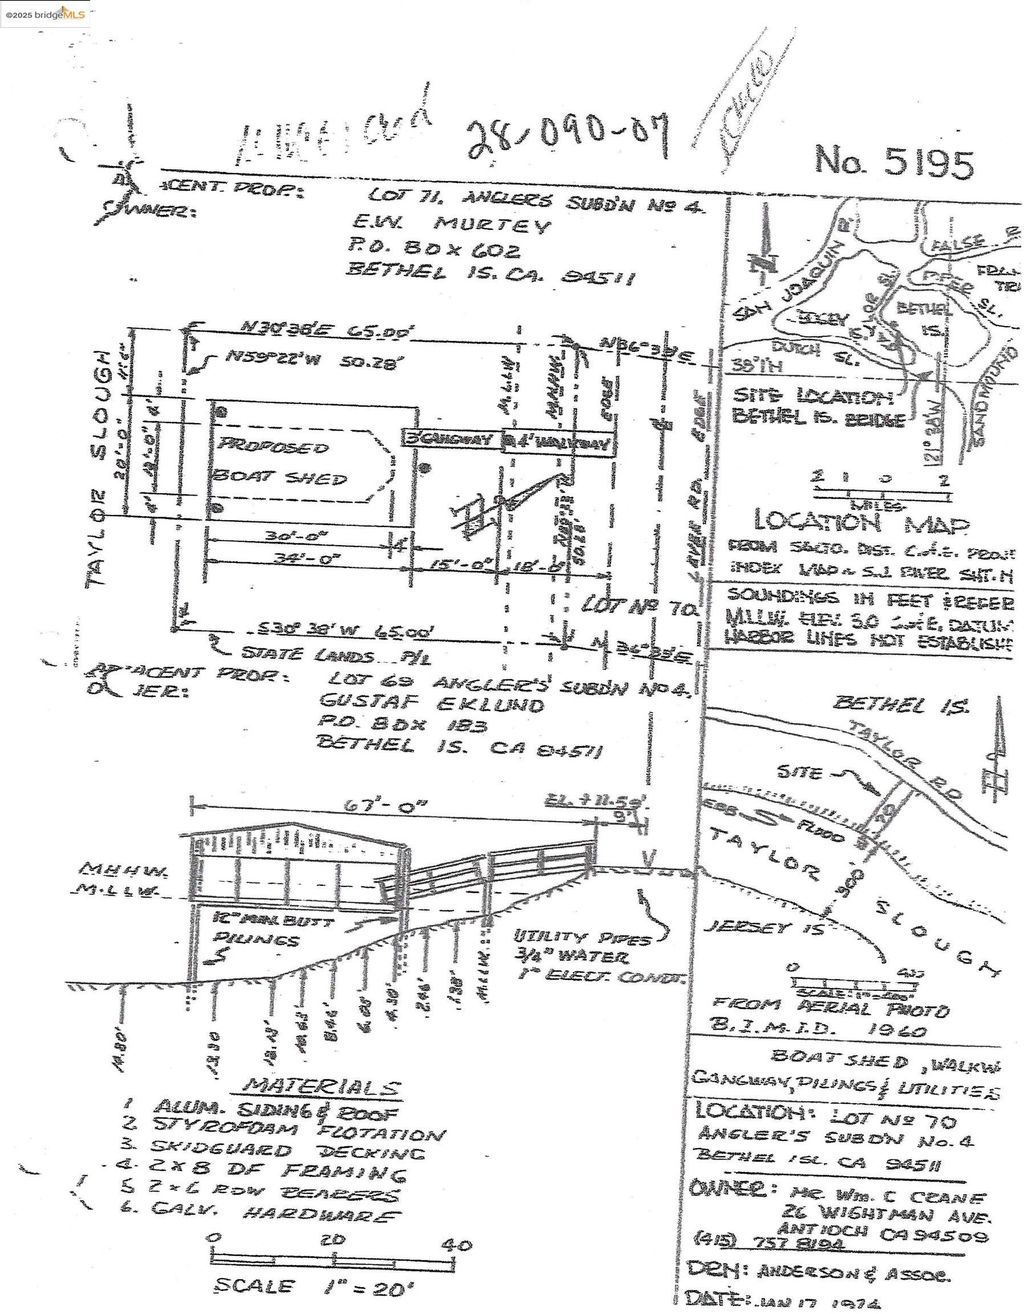 ©2025 bridgeMLS
28-090-07
No. 5195
ACENT. PROP.: LOT 71, ANGLERS SUBD'N Nº 4.
OWNER: E.W. MURTEY
P.O. BOX 602
BETHEL IS. CA. 94511
N30°38'E 65.00'
N59°22'W 50.28'
TAYLOR SLOUGH
20'-0"
12'-0"
4'
4'
PROPOSED
BOAT SHED
3' GANGWAY
4' WALKWAY
M.L.L.W.
M.H.H.W.
EDGE
N36°33'E
LEVEE RD. EDGE
30'-0"
4'
34'-0"
15'-0"
18'-0"
50.28'
LOT Nº 70
S30°38'W 65.00'
N 36°33'E
STATE LANDS P/L
ADJACENT PROP: LOT 69 ANGLER'S SUBD'N Nº 4.
GUSTAF EKLUND
P.O. BOX 183
BETHEL IS. CA 94511
67'-0"
EL. + 11.59'
M.H.H.W.
M.L.L.W.
12" MIN. BUTT
PILINGS
UTILITY PIPES
3/4" WATER
1" ELECT. CONDT.
14.80'
13.90
12.13'
10.63'
8.46'
6.05'
4.30'
2.46'
1.38'
M.L.L.W.
MATERIALS
1 ALUM. SIDING & ROOF
2 STYROFOAM FLOTATION
3. SKIDGUARD DECKING
4. 2 X 8 DF FRAMING
5 2 X 6 ROW BEARERS
6. GALV. HARDWARE
0 20 40
SCALE 1" = 20'
N
SAN JOAQUIN R.
FALSE R
PIPER SL.
TAYLOR SL.
BETHEL IS.
DUTCH SL.
38°1'N
SAND MOUND
121°38'W
SITE LOCATION
BETHEL IS. BRIDGE
2 1 0 2
MILES
LOCATION MAP
FROM SACTO. DIST. C.of.E.
INDEX MAP S.J. RIVER SHT.
SOUNDINGS IN FEET & REFER
M.L.L.W. ELEV. 3.0 C.of E. DATUM
HARBOR LINES NOT ESTABLISHE
BETHEL IS.
TAYLOR RD
SITE
EBB
FLOOD
20
300
TAYLOR SLOUGH
JERSEY IS
N
0 400
SCALE: 1"=400'
FROM AERIAL PHOTO
B.I.M.I.D. 1960
BOAT SHED, WALKW
GANGWAY, PILINGS & UTILITIES
LOCATION: LOT Nº 70
ANGLER'S SUBD'N No. 4
BETHEL ISL. CA 94511
OWNER: MR. WM. C CRANE
26 WIGHTMAN AVE.
ANTIOCH CA 94509
(415) 757 8194
DRN: ANDERSON & ASSOC.
DATE: JAN 17, 1974